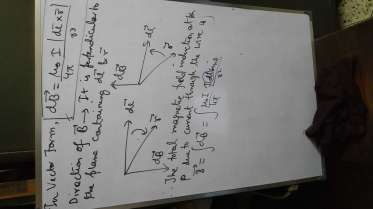 In Vector Form, dB⃗ = μ₀ I |dl⃗ × r⃗| / 4π r³
Direction of B⃗ → It is perpendicular to
the plane containing dl⃗ & r⃗
dB⃗ dl⃗ r⃗
dl⃗ r⃗ dB⃗
∴ The total magnetic field induction at
P due to current through the wire is
B⃗ = ∫dB⃗ = ∫ μ₀ I / 4π